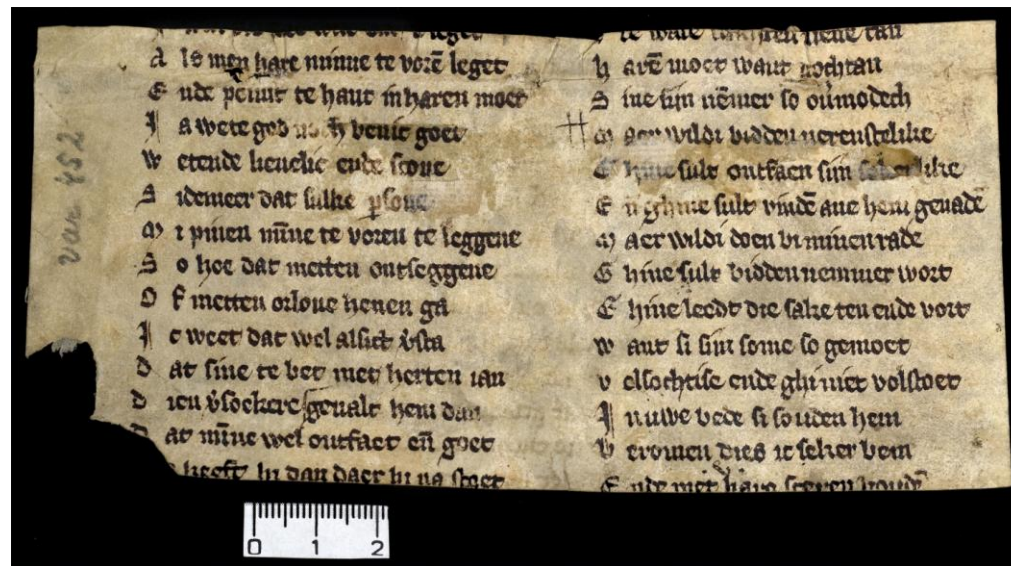 A ls men hare minne te vorē leget
E nde peinst te hant in haren moet
J a wete god noch benic goet
W etende lieuelic ende scone
S idemeer dat sulke psone
M i pinen mīne te voren te leggene
S o hoe dat metten ontseggene
O f metten orloue henen ga
J c weet dat wel alsict v̉sta
D at sine te bet met herten ian
D ien v̉soekere geualt hem dan
D at mīne wel ontfaet en̄ goet
heeft hi dan daer hi na stoet
te ware
h arē moet want nochtan
S ine sijn nēmer so oūmodech
M aer wildi bidden nerenstelike
G hine sult ontfaen sijn sekerlike
E n̄ ghine sult vindē ane hem genadē
M aer wildi doen bi minen rade
G hine sult bidden nemmer wort
E hine leedt die sake ten ende vort
W ant si sijn some so gemoet
V elsochtise ende ghi niet volstoet
J n uwe bede si souden hem
V eromen dies ic seker bem
E nde met haren
van 452
0 1 2